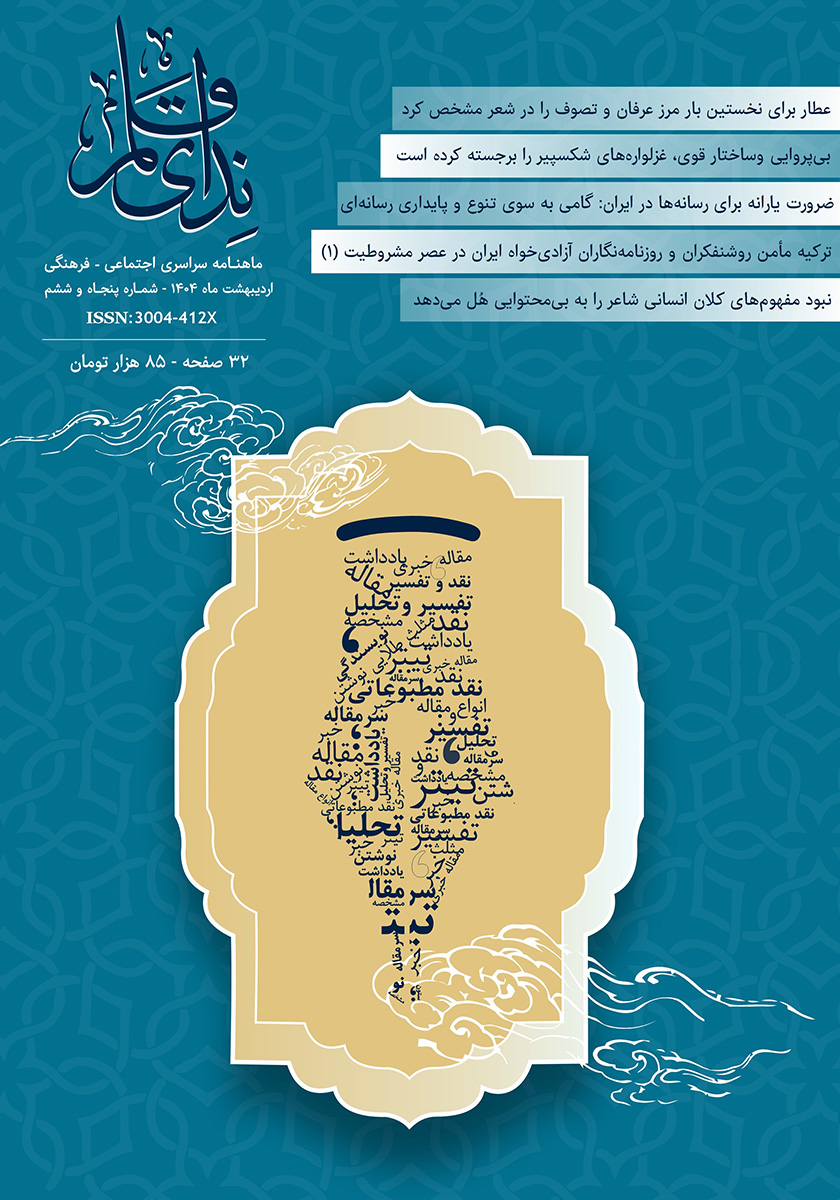 ندای قلم
ماهنامه سراسری اجتماعی - فرهنگی
اردیبهشت ماه ۱۴۰۴ - شماره پنجاه و ششم
ISSN: 3004-412X
۳۲ صفحه - ۸۵ هزار تومان
عطار برای نخستین بار مرز عرفان و تصوف را در شعر مشخص کرد
بی‌پروایی وساختار قوی، غزلواره‌های شکسپیر را برجسته کرده است
ضرورت یارانه برای رسانه‌ها در ایران: گامی به سوی تنوع و پایداری رسانه‌ای
ترکیه مأمن روشنفکران و روزنامه‌نگاران آزادی‌خواه ایران در عصر مشروطیت (۱)
نبود مفهوم‌های کلان انسانی شاعر را به بی‌محتوایی هُل می‌دهد
مقاله خبری یادداشت
نقد و تفسیر مقاله
تفسیر وتحلیل
نقد مثلث مشخصه
یادداشت طلایی نویسندگی
تیتر
مقاله خبری
نقد سرمقاله نوشتن
نقد مطبوعاتی
انواع و مقاله خبر
سرمقاله
تفسیر یادداشت خبر
تحلیل
سرمقاله نقد مقاله
مشخصه یادداشت نقد
تیتر شتن
خبر مقاله خبری تفسیر وتحلیل تیتر نوشتن انواع مقاله
نقد مطبوعاتی نقد مطبوعاتی
سرمقاله تحلیل
تفسیر تیتر خبر
مثلث نوشتن
خبر مقاله خبری یادداشت
سر مقالا
مشخصه
تیتر
خبر سرمقاله